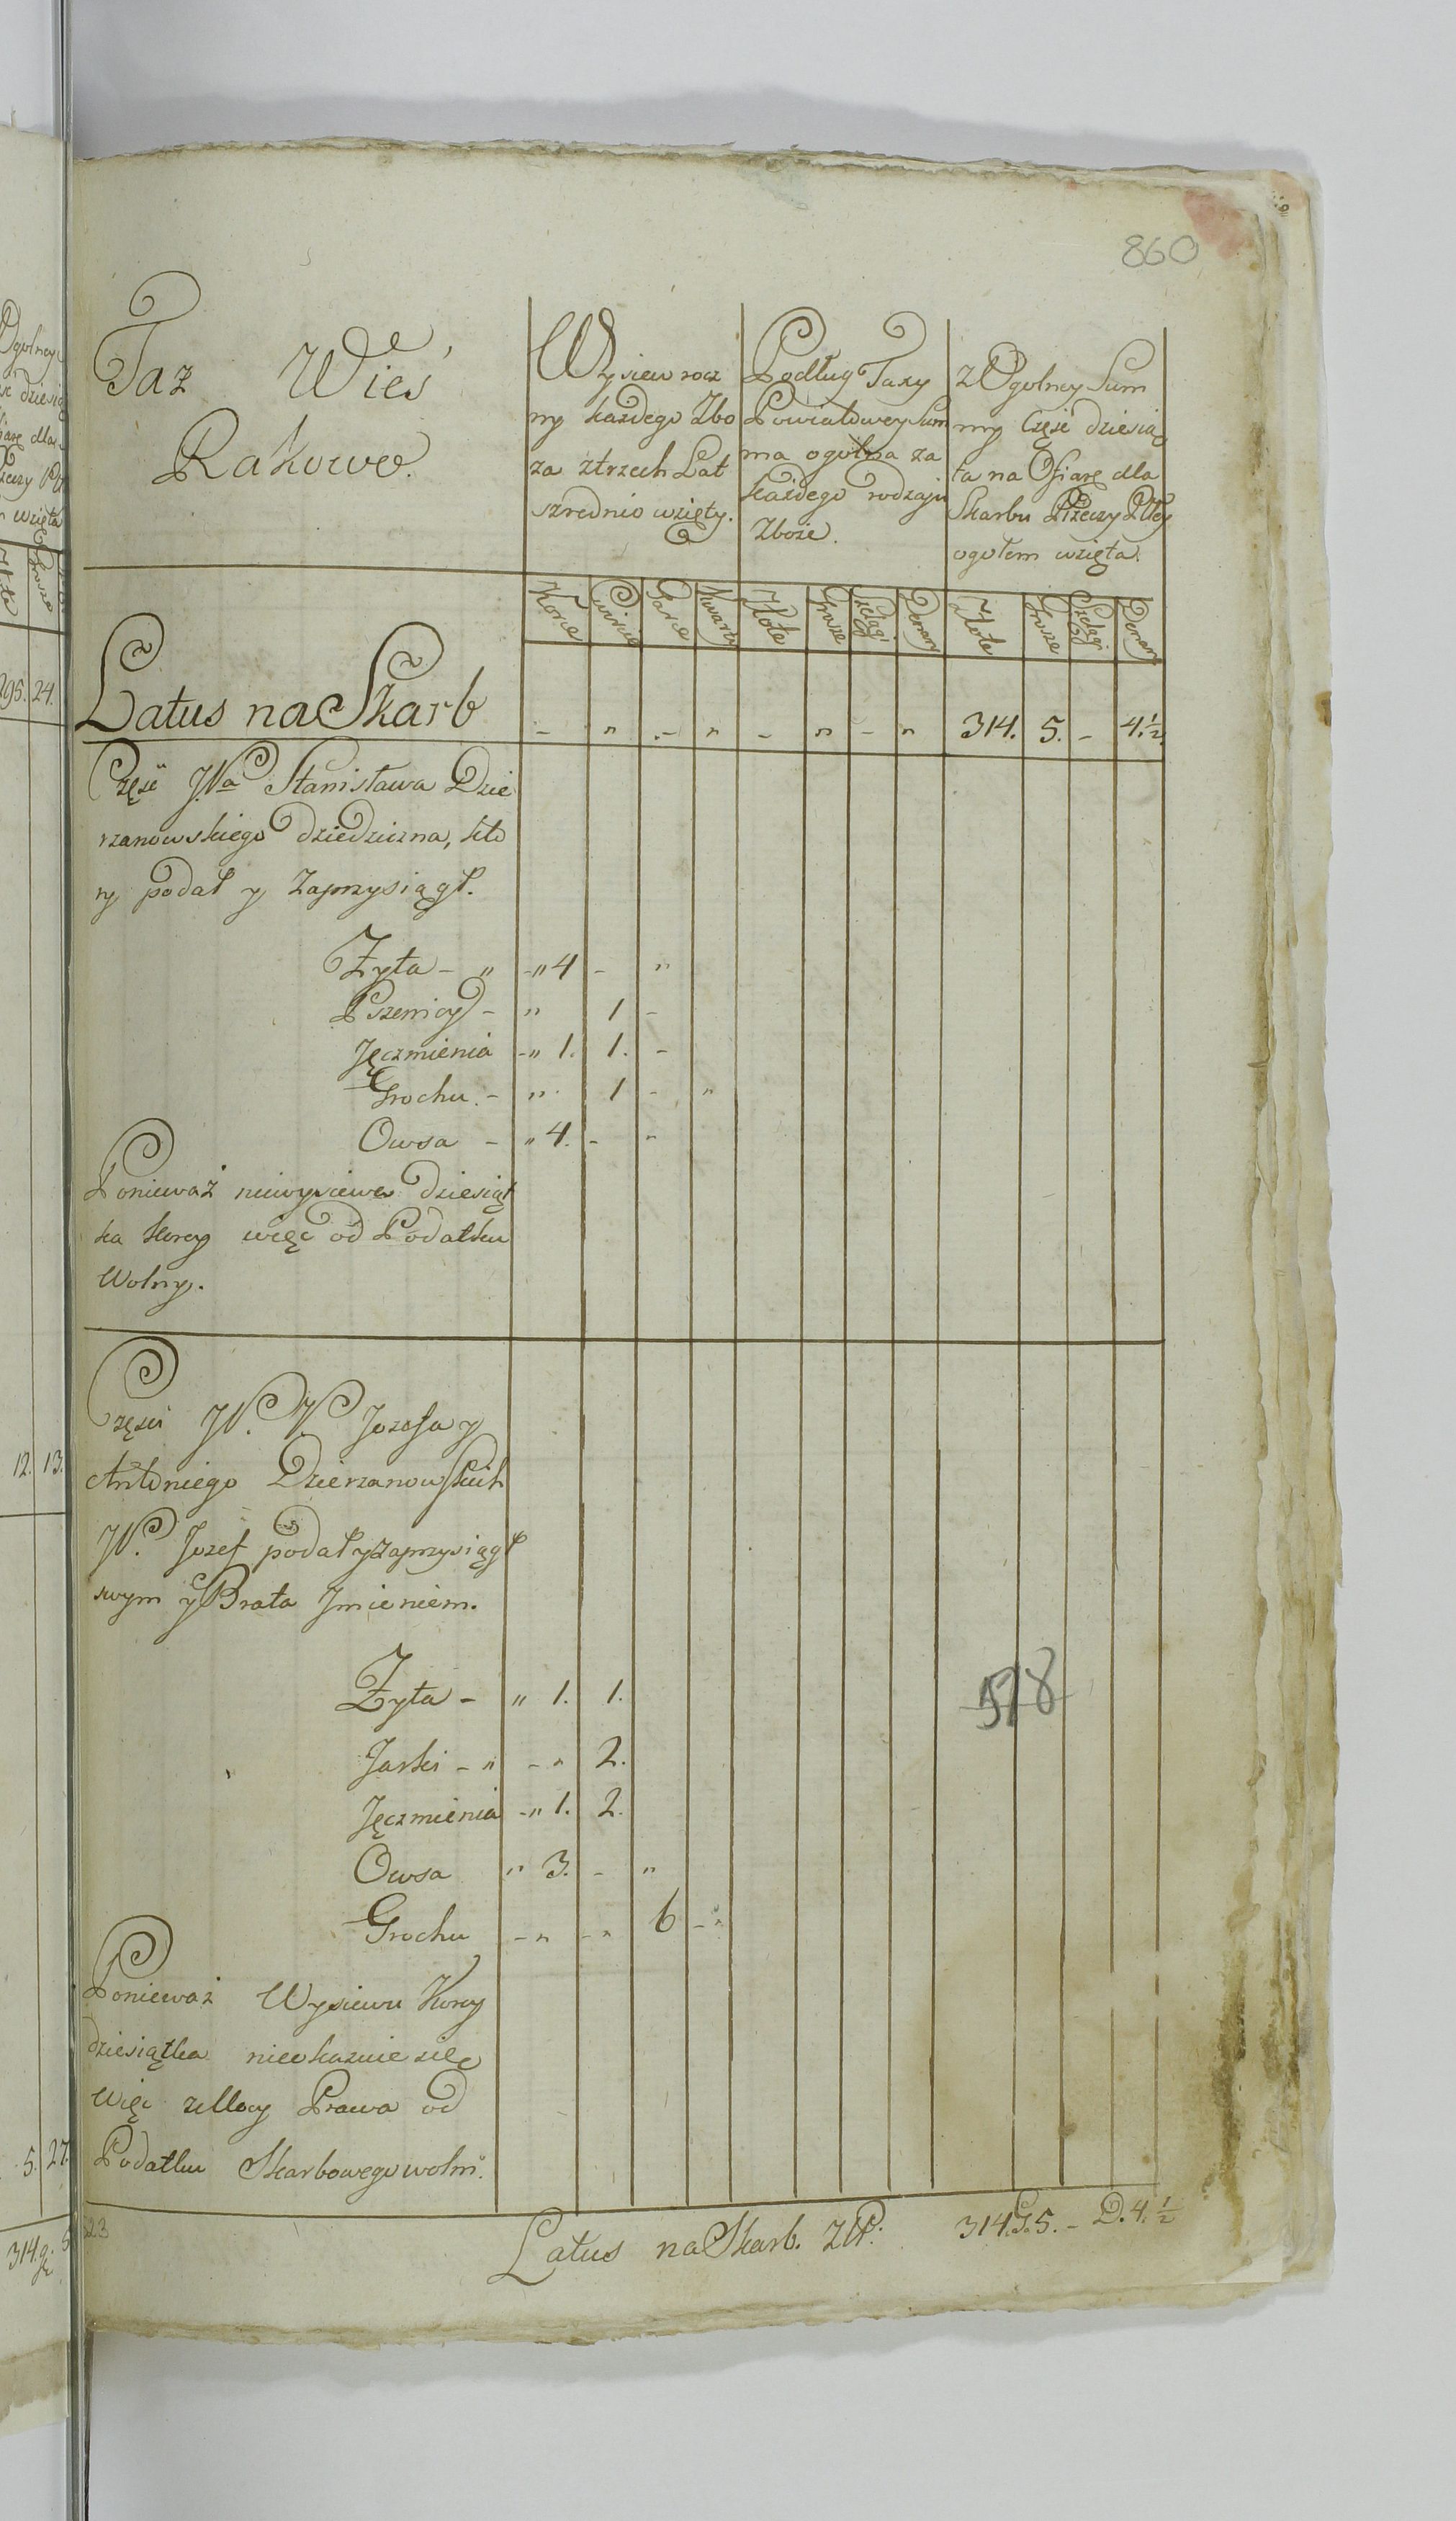 860
Taz Wieś
Rakowo.
Wysiew rocz
ny każdego Zbo
za ztrzech Lat
szrednio wzięty.
Podług Taxy
Powiatowey Sum
ma ogolna za
każdego rodzaju
Zboże.
z Ogolney Sum
my Część dziesią
ta na Ofiarę dla
Skarbu Rzeczy Pltey
ogołem wzięta.
Korce Ćwierce Garce Kwarty Złote Grosze Szelągi Denary Złote Grosze Szelągi Denary
Latus na Skarb - " - " - " - " 314. 5. - 4.½.
Część JPa Stanisława Dzie
rzanowskiego dziedziczna, kto
ry podał y zaprzysiągł.
Zyta - " - " 4 - "
Pszenicy - " 1 -
Jęczmienia - " 1. 1. -
Grochu. - " 1 - "
Owsa - " 4. - "
Ponieważ niewysiewa dziesiąt
ka korcy więc od Podatku
Wolny.
Częsci JP. P. Jozefa y
Antoniego Dzierzanowskich
JP. Jozef podał y zaprzysiągł
swym y Brata Jmieniem.
Zyta - " 1. 1.
Jarki - " - " 2.
Jęczmienia - " 1. 2.
Owsa " 3. - "
Grochu - " - " 6 - "
578
Ponieważ Wysiewu Korcy
dziesiątka nieokazuie się
Więc z Mocy Prawa od
Podatku Skarbowego wolni.
Latus na Skarb. ZłP. 314. G. 5. - D. 4. ½
523
Ogolney
dla
wzięta
295. 24.
12. 13.
5. 27.
314. g. 5